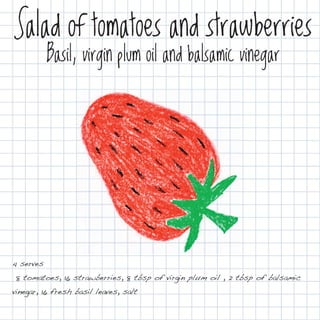 Salad of tomatoes and strawberries
Basil, virgin plum oil and balsamic vinegar
4 serves
8 tomatoes, 16 strawberries, 8 tbsp of virgin plum oil , 2 tbsp of balsamic
vinegar, 16 fresh basil leaves, salt